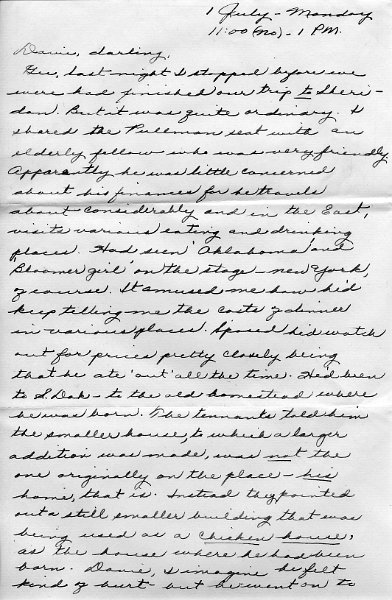 1 July - Monday
11:00 (no) - 1 PM.
Danie, darling,
Gee, last night I stopped before we
were had finished our trip to Sheri-
dan. But it was quite ordinary. I
shared the Pullman seat with an
elderly fellow who was very friendly.
Apparently he was little concerned
about his finances for he travels
about considerably and in the East,
visits various eating and drinking
places. Had seen 'Oklahoma' and
'Bloomer Girl' on the stage - New York,
of course. It amused me how he'd
keep telling me the costs of dinner
in various places. S'posed he'd watch
out for prices pretty closely being
that he ate 'out' all the time. He'd been
to S. Dak - to the old homestead where
he was born. The tennants told him
the smaller house, to which a larger
addition was made, was not the
one originally on the place - his
home, that is. Instead they pointed
out a still smaller building that was
being used as a chicken house,
as the house where he had been
born. Danie, I imagine he felt
kind of hurt but he went on to